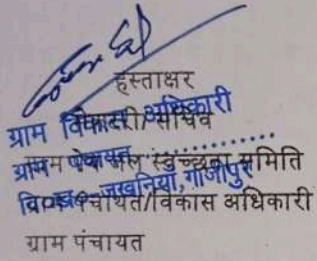 हस्ताक्षर
ग्राम विकास अधिकारी
सचिव
ग्राम पंचायत..............
ग्राम पेय जल स्वच्छता समिति
वि०ख०-जखनियाँ, गाजीपुर
पंचायत/विकास अधिकारी
ग्राम पंचायत